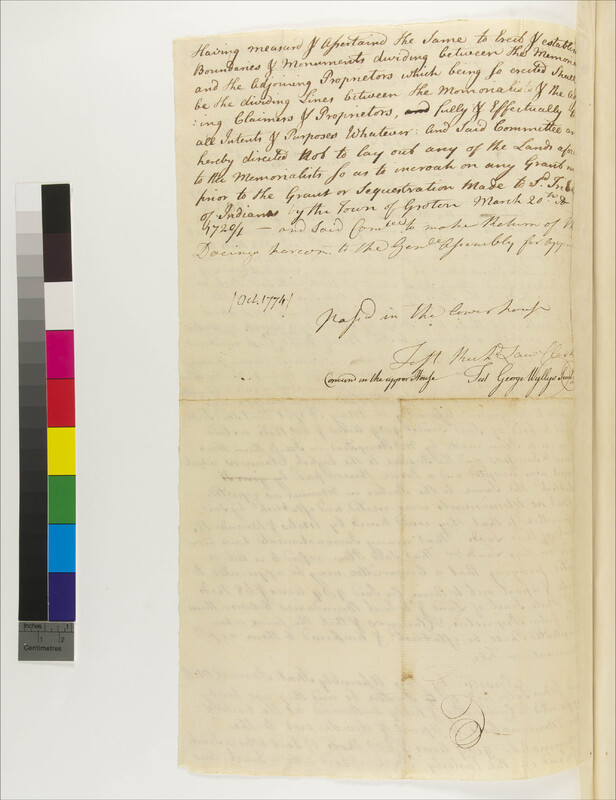 Having measurd & Assertaind the Same to Erect & establish
Boundaries & Monuments dividing between the Memor
and the Adjoining Proprietors which being so erected Shall
be the dividing Lines between the Memorialists & the
:ing Claimers & Proprietors, and fully & Effectually to
all Intents & Purposes Whatever: And Said Committee are
hereby directed Not to lay out any of the Lands afores
to the Memorialists so as to incroah on any Grant
prior to the Grant or Sequestration Made to Sd. Tribe
of Indians by the Town of Groton March 20th. &
1720/1 — and Said Comtee to make Return of
Doeings hereon to the Genll Assembly for
[Oct. 1774]
Pass'd in the Lower house
Test Richd Law Clerk
Concurd in the upper House
Test George Wyllys Secret
Inches 1 2
Centimetres